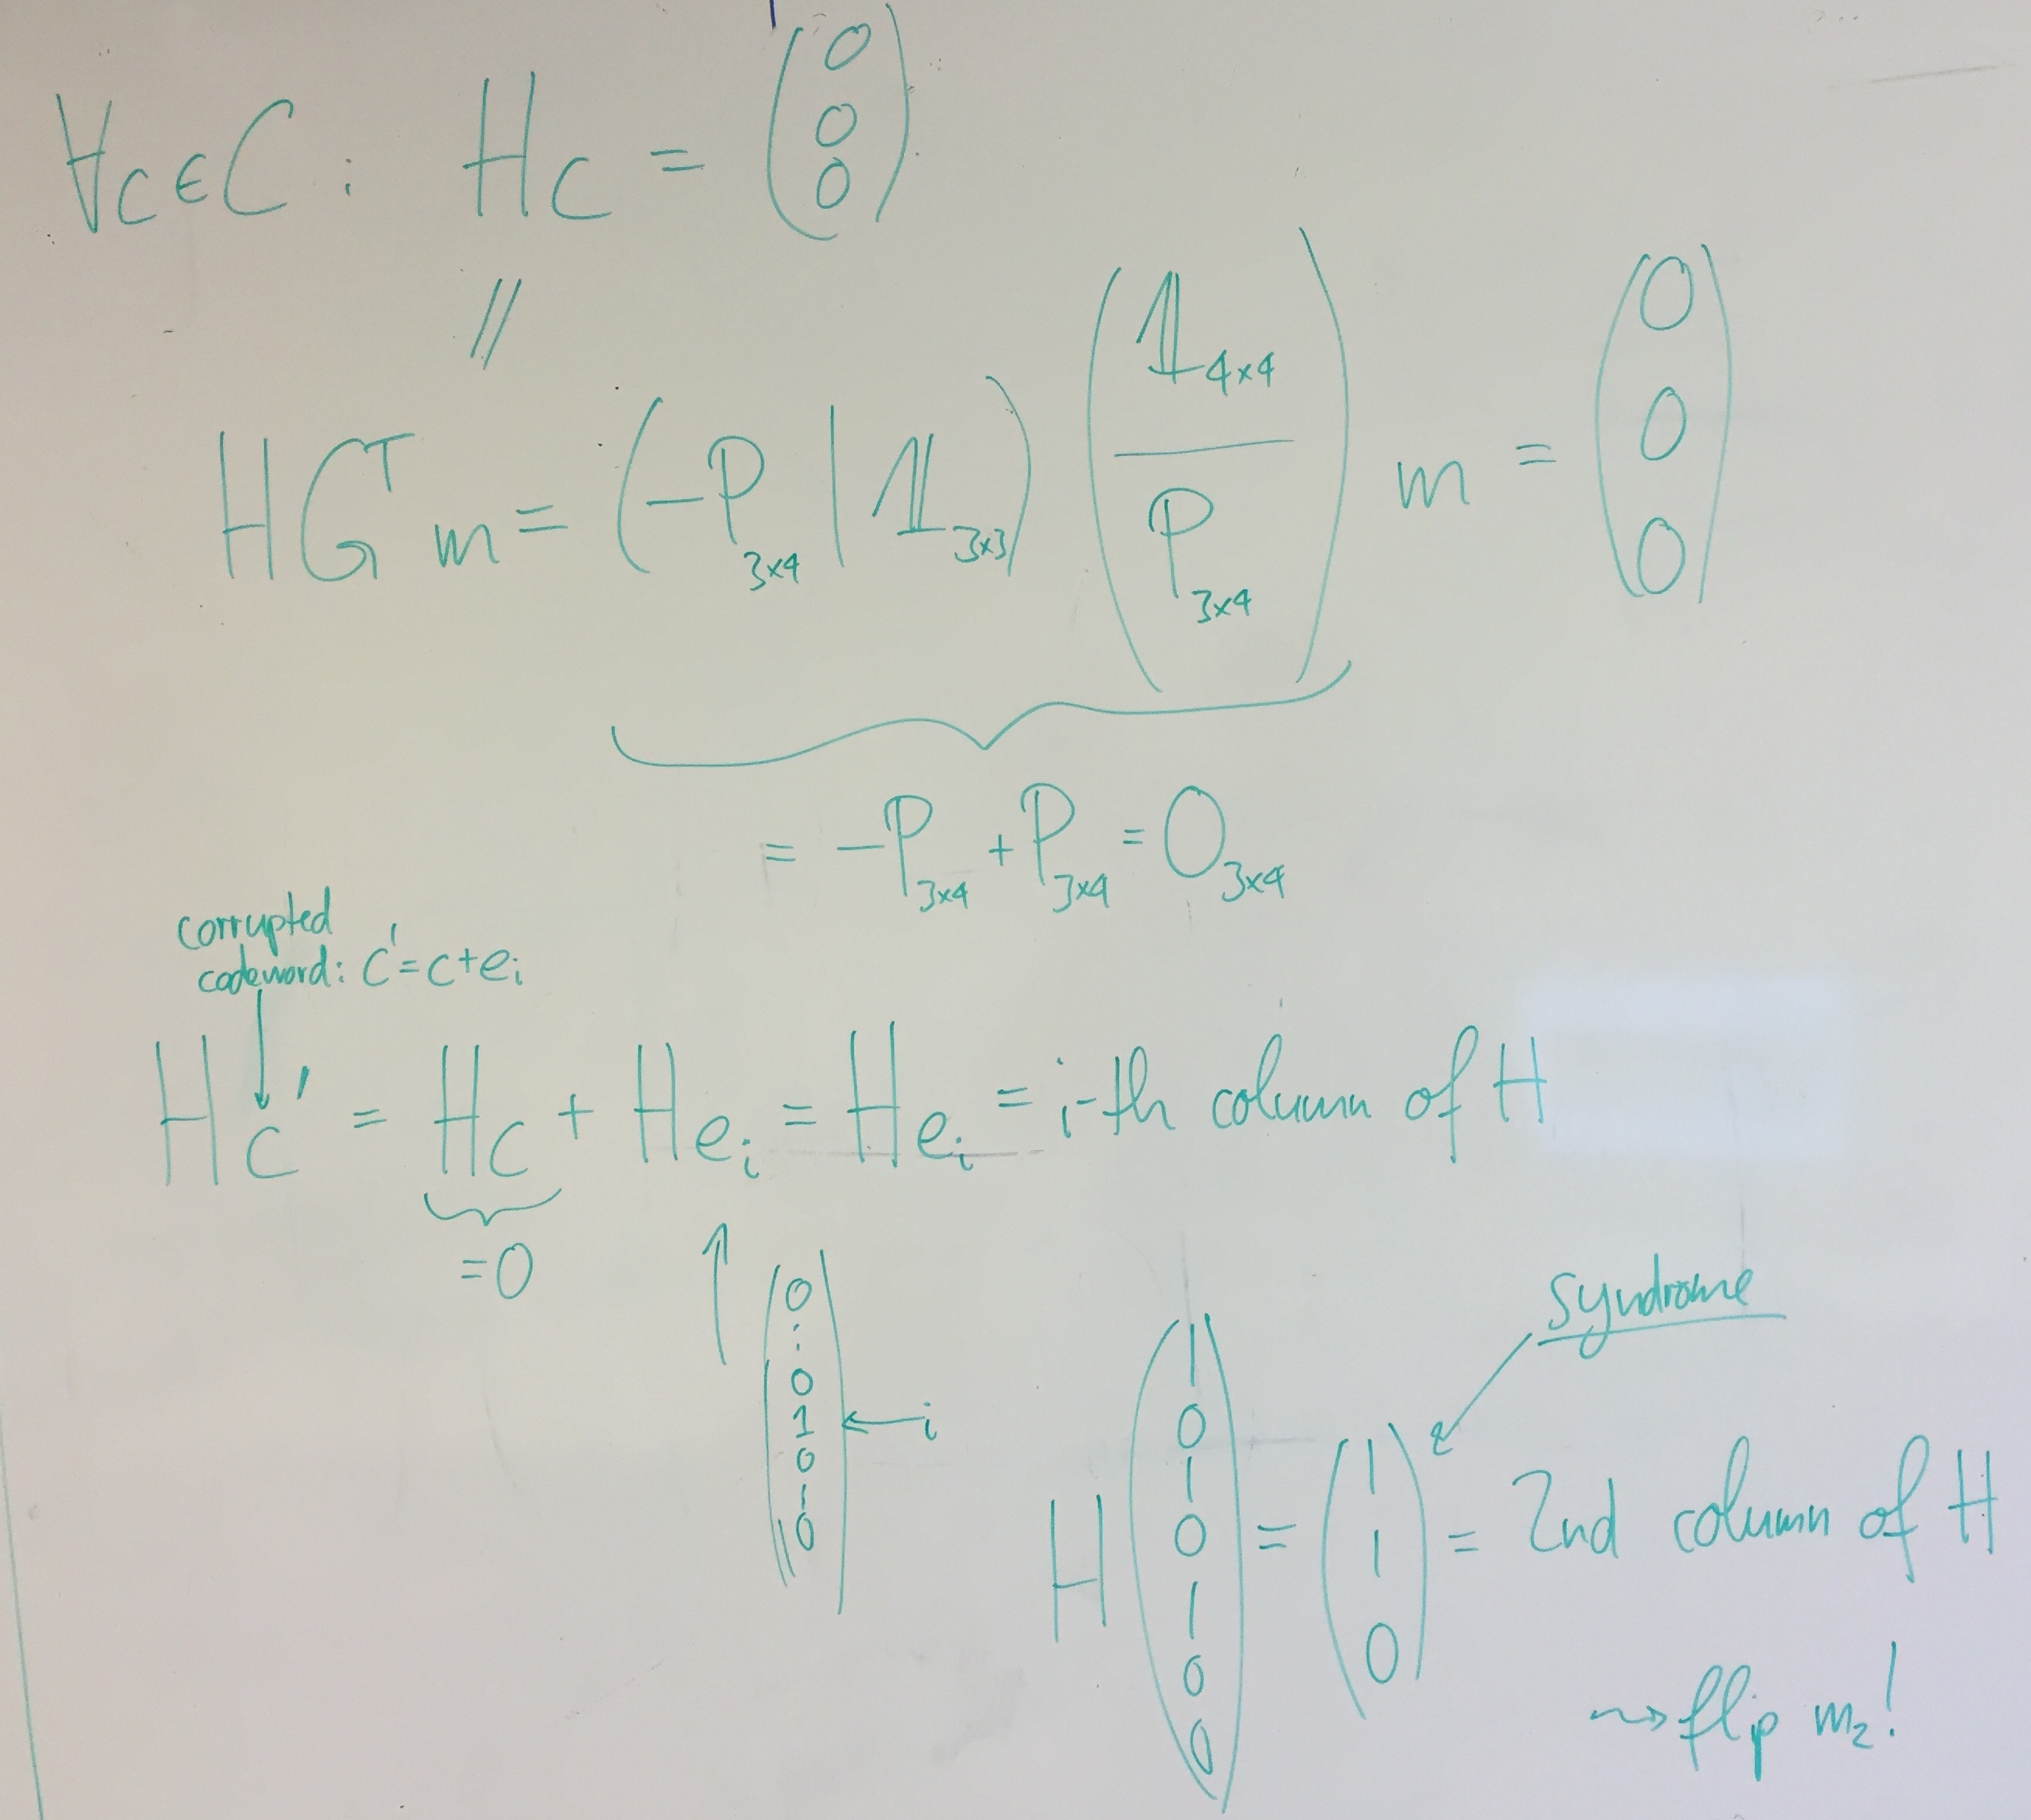 ∀c∈C : Hc = (0 0 0)
//
HGᵀm = (-P₃ₓ₄ | 𝟙₃ₓ₃) (𝟙₄ₓ₄ / P₃ₓ₄) m = (0 0 0)
= -P₃ₓ₄ + P₃ₓ₄ = O₃ₓ₄
corrupted
codeword: c' = c+eᵢ
Hc' = Hc + Heᵢ = Heᵢ = i-th column of H
=0
(0 ⋮ 0 1 0 ⋮ 0) ← i
syndrome
H (1 0 1 0 1 0 0) = (1 1 0) = 2nd column of H
⇝ flip m₂!